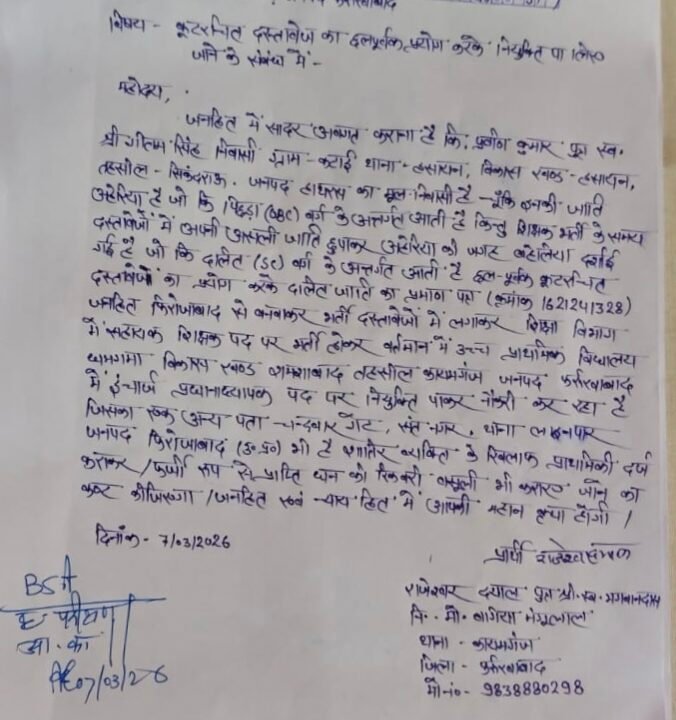 फर्रुखाबाद
विषय - कूटरचित दस्तावेज का छलपूर्वक प्रयोग करके नियुक्ति पा लिए
जाने के संबंध में -
महोदय,
जनहित में सादर अवगत कराना है कि, प्रवीण कुमार पुत्र स्व.
श्री गौतम सिंह निवासी ग्राम - कटाई थाना - हसायन, विकास खण्ड - हसायन,
तहसील - सिकंदराऊ. जनपद हाथरस का मूल निवासी है - चूँकि इनकी जाति
अहेरिया है जो कि पिछड़ा (OBC) वर्ग के अन्तर्गत आती है किन्तु शिक्षक भर्ती के समय
दस्तावेजों में अपनी असली जाति छुपाकर अहेरिया की जगह बहेलिया दर्शाई
गई है जो कि दलित (SC) वर्ग के अन्तर्गत आती है छल-पूर्वक कूटरचित
दस्तावेजों का प्रयोग करके दलित जाति का प्रमाण पत्र (क्रमांक 1621241328)
जनहित फिरोजाबाद से बनवाकर भर्ती दस्तावेजों में लगाकर शिक्षा विभाग
में सहायक शिक्षक पद पर भर्ती होकर वर्तमान में उच्च प्राथमिक विद्यालय
विकास खण्ड शमशाबाद तहसील कायमगंज जनपद फर्रुखाबाद
में इंचार्ज प्रधानाध्यापक पद पर नियुक्ति पाकर नौकरी कर रहा है
जिसका एक अन्य पता - चन्दवार गेट, संत नगर, थाना लाइनपार
जनपद फिरोजाबाद (उ.प्र०) भी है शातिर व्यक्ति के खिलाफ प्राथमिकी दर्ज
कराकर / फर्जी रूप से प्राप्ति धन की रिकवरी वसूली भी कराए जाने का
कष्ट कीजिएगा / जनहित एवं न्याय हित में आपकी महान कृपा होगी /
दिनांक - 7/03/2026
प्रार्थी
राजेश्वर दयाल पुत्र श्री. स्व. भगवानदास
नि. मो. बागिया मंगूलाल
थाना - कायमगंज
जिला - फर्रुखाबाद
मो-no- 9838880298
BSA
07/03/26